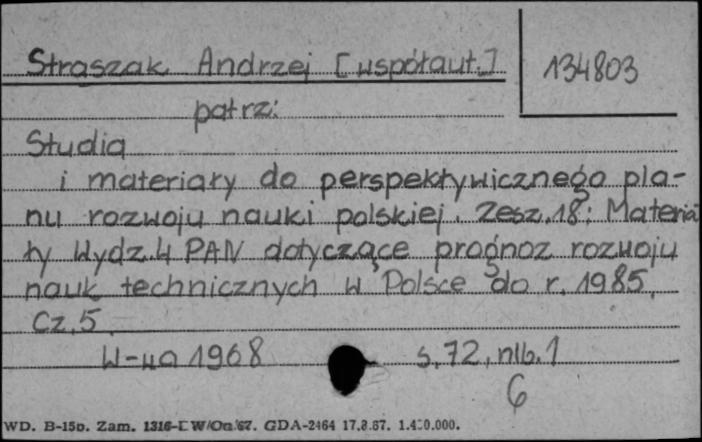 Straszak Andrzej [współaut.]
134803
patrz:
Studia
i materiały do perspektywicznego pla-
nu rozwoju nauki polskiej. Zesz. 18: Materia
ły Wydz. 4 PAN dotyczące prognoz rozwoju
nauk technicznych w Polsce do r. 1985.
Cz. 5.
W-wa 1968 s. 72, nlb. 1
6
WD. B-15b. Zam. GDA-2464 17.8.67.